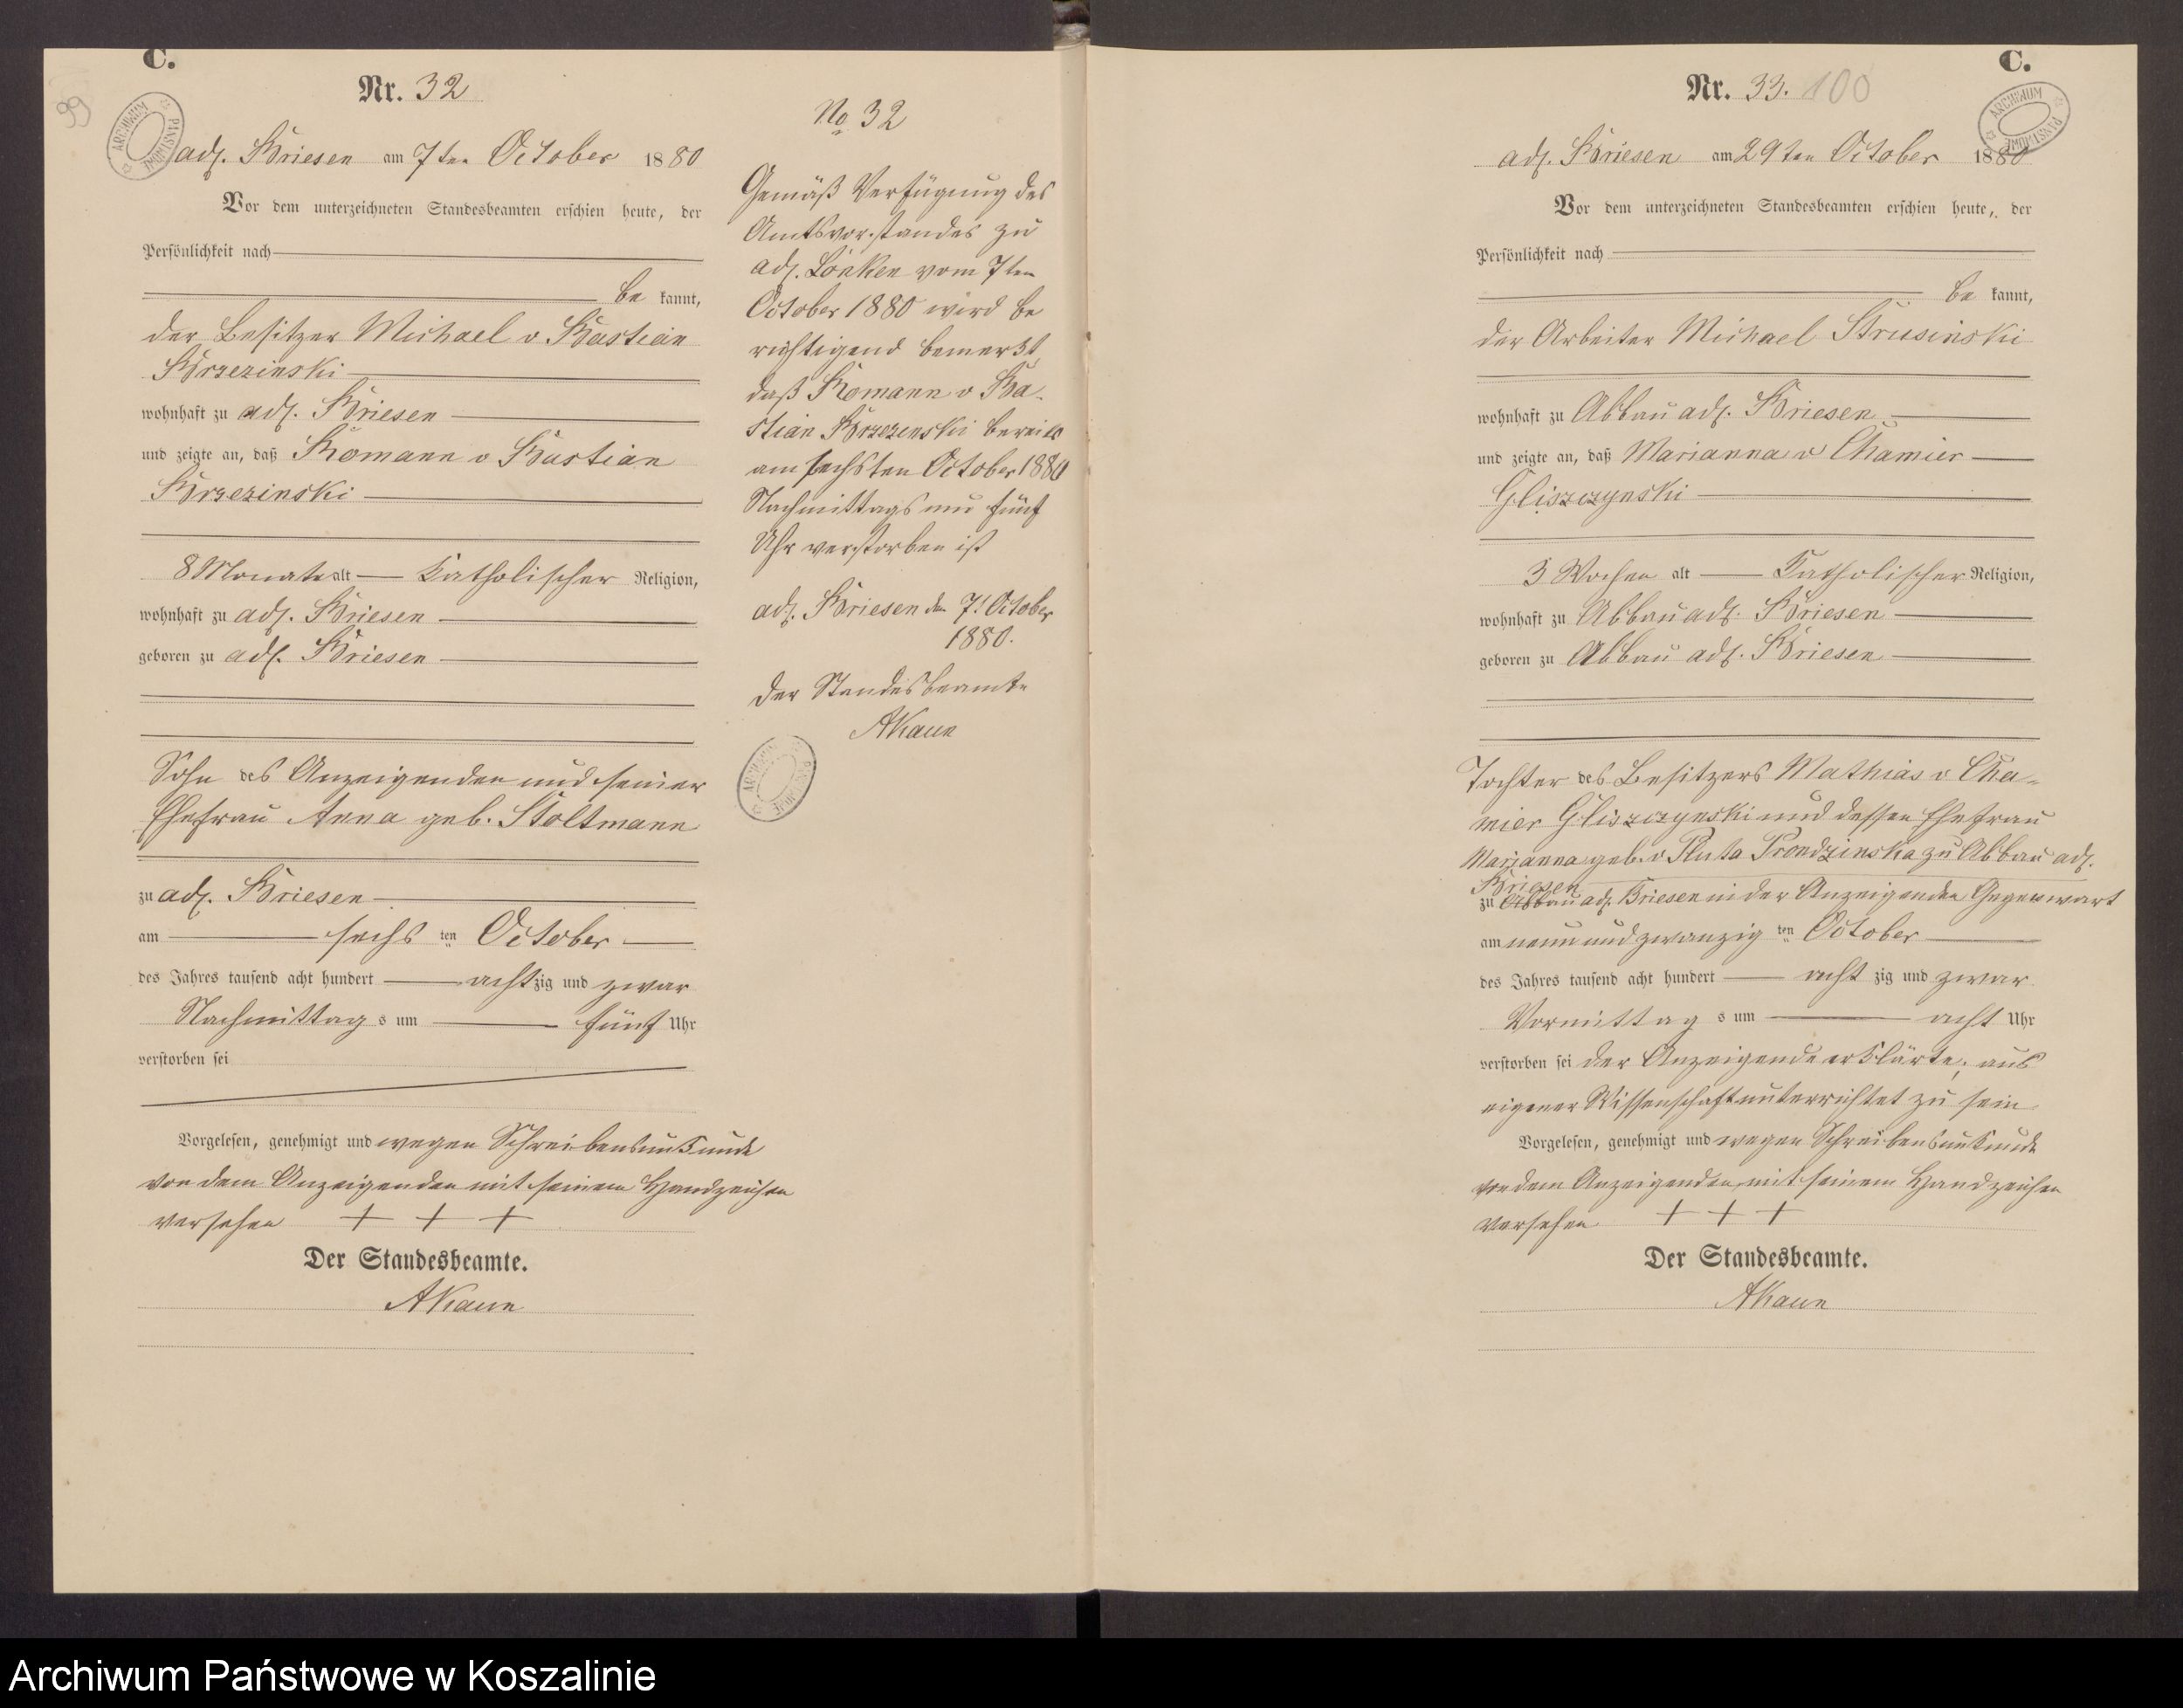 C.
99
Nr. 32
ARCHIWUM PAŃSTWOWE
adl. Briesen am 7ten October 1880
Vor dem unterzeichneten Standesbeamten erschien heute, der
Persönlichkeit nach
be kannt,
der Besitzer Michael v Bastian
Brzezinski
wohnhaft zu adl. Briesen
und zeigte an, daß Romann v Bastian
Brzezinski
8 Monate alt Katholischer Religion,
wohnhaft zu adl. Briesen
geboren zu adl. Briesen
Sohn des Anzeigenden und seiner
Ehefrau Anna geb. Stoltmann
zu adl. Briesen
am sechs ten October
des Jahres tausend acht hundert achtzig und zwar
Nachmittag s um fünf Uhr
verstorben sei
Vorgelesen, genehmigt und wegen Schreibensunkunde
von dem Anzeigenden mit seinem Handzeichen
versehen + + +
Der Standesbeamte.
AKaun
No 32
Gemäß Verfügung des
Amtsvorstandes zu
adl. Lonken vom 7ten
October 1880 wird be
richtigend bemerkt,
daß Romann v Ba-
stian Brzezenski bereits
am sechsten October 1880
Nachmittags um fünf
Uhr verstorben ist
adl. Briesen den 7t October
1880.
Der Standesbeamte
AKaun
ARCHIWUM PAŃSTWOWE
C.
Nr. 33. 100
ARCHIWUM PAŃSTWOWE
adl. Briesen am 29ten October 1880
Vor dem unterzeichneten Standesbeamten erschien heute, der
Persönlichkeit nach
be kannt,
der Arbeiter Michael Strusinski
wohnhaft zu Abbau adl. Briesen
und zeigte an, daß Marianna v Chamier
Gliszczynski
3 Wochen alt Katholischer Religion,
wohnhaft zu Abbau adl. Briesen
geboren zu Abbau adl. Briesen
Tochter des Besitzers Mathias v Cha-
mier Gliszczynski und dessen Ehefrau
Marianna geb. v Pluta Prondzinska zu Abbau adl.
Briesen
zu Abbau adl. Briesen in der Anzeigenden Gegenwart
am neun und zwanzig ten October
des Jahres tausend acht hundert acht zig und zwar
Vormittag s um acht Uhr
verstorben sei der Anzeigende erklärte, aus
eigener Wissenschaft unterrichtet zu sein
Vorgelesen, genehmigt und wegen Schreibensunkunde
von dem Anzeigenden mit seinem Handzeichen
versehen + + +
Der Standesbeamte.
AKaun
Archiwum Państwowe w Koszalinie